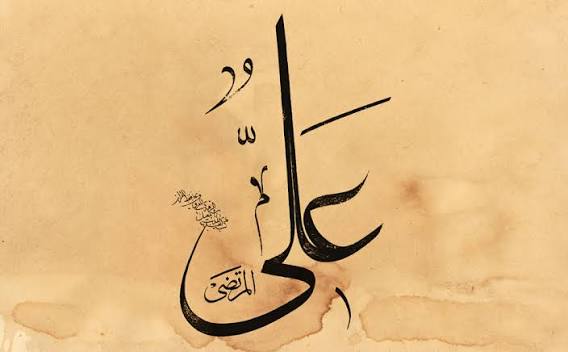 علي
المرتضى